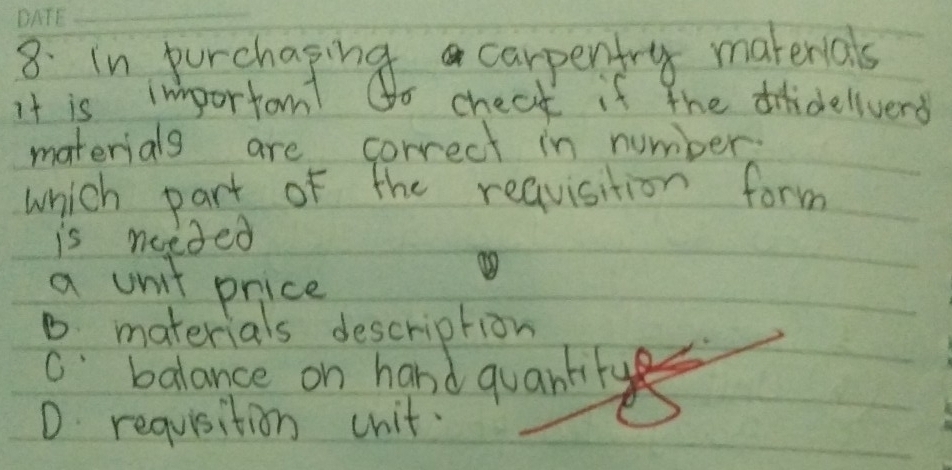 DATE
8. in purchasing a carpentry materials
it is important to check if the delivered
materials are correct in number.
which part of the requisition form
is needed
a unit price
B. materials description
C. balance on hand quantity
D. requisition unit.